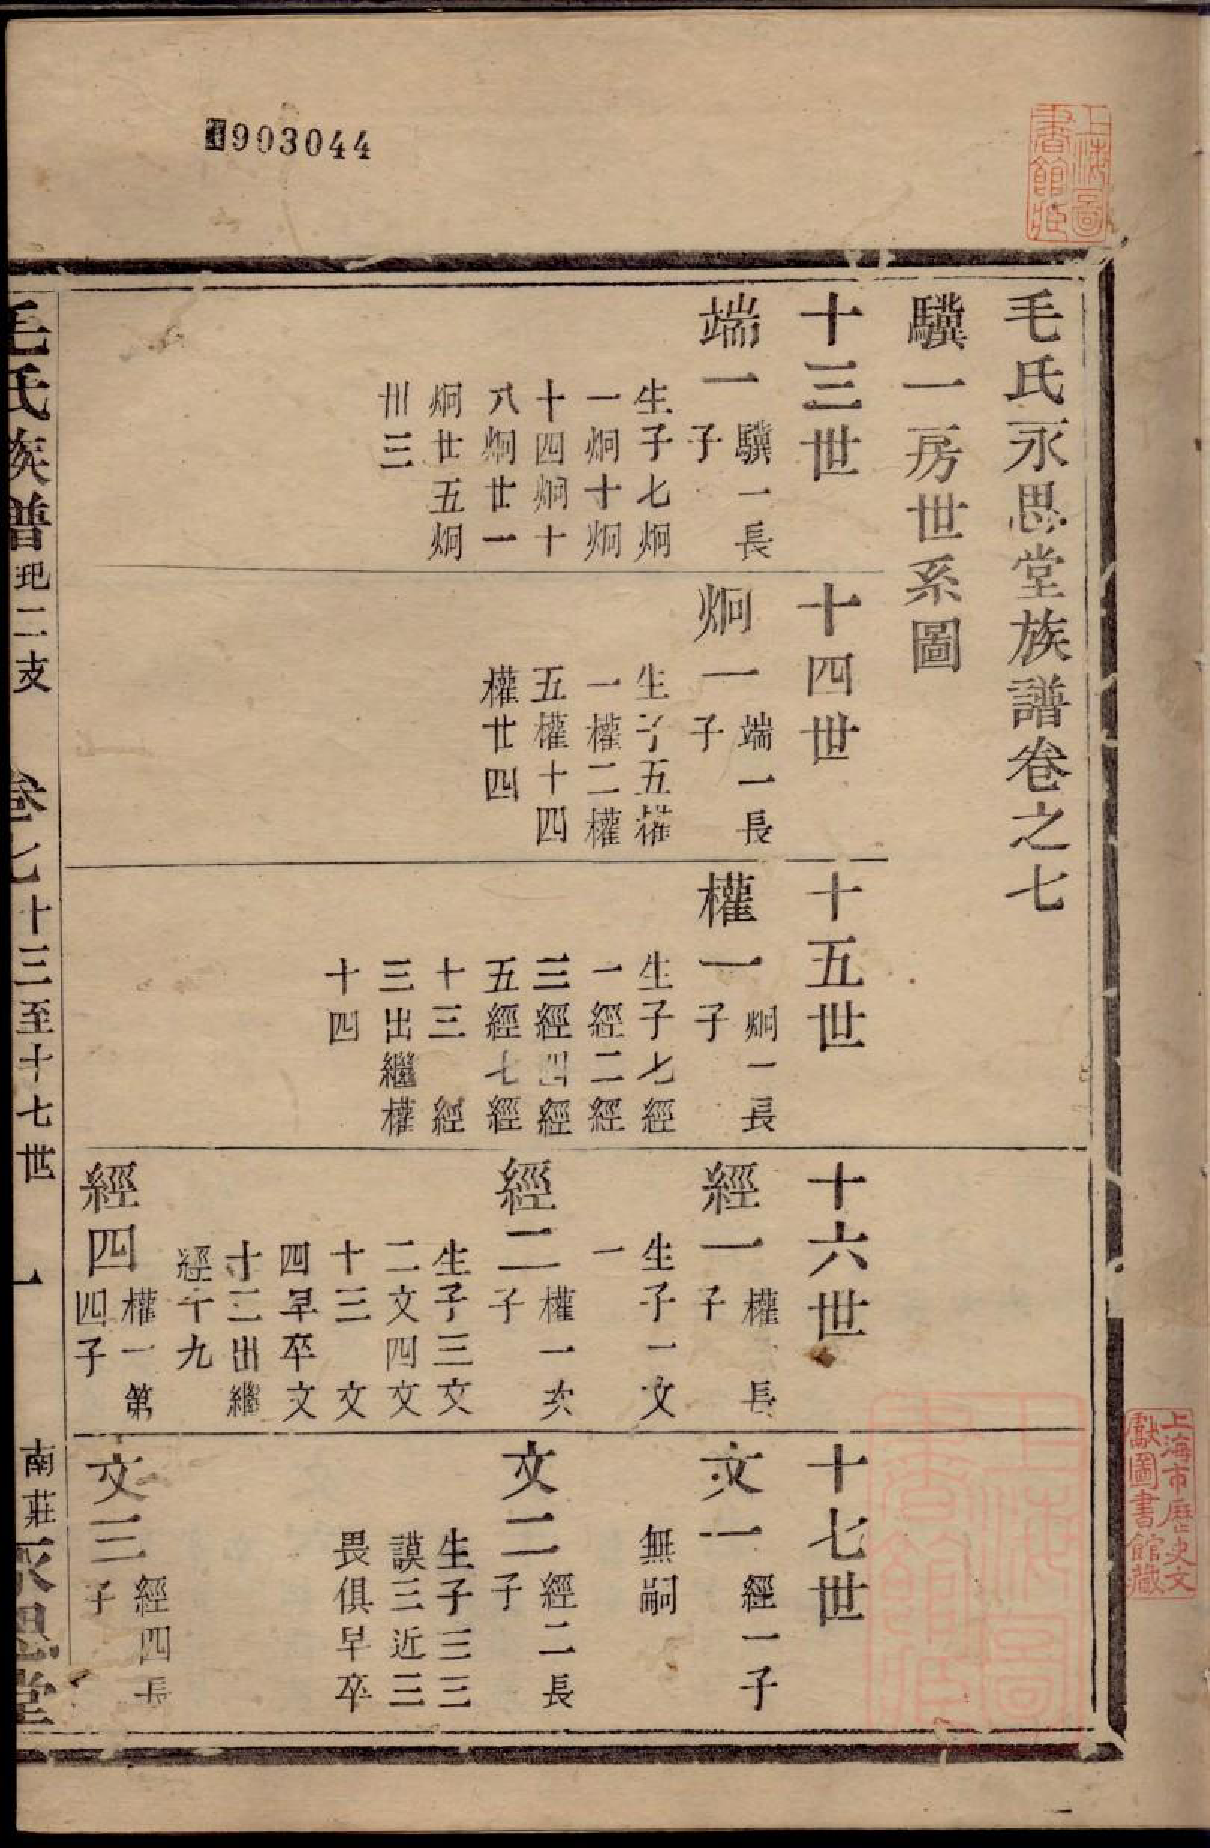 903044
上海圖
書館藏
毛氏永思堂族譜卷之七
驥一房世系圖
十三世
端一
驥一長
子
生子七炯
一炯十炯
十四炯十
八炯廿一
炯廿五炯
卅三
十四世
炯一
端一長
子
生子五權
一權二權
五權十四
權廿四
十五世
權一
炯一長
子
生子七經
一經二經
三經四經
五經七經
十三 經
三出繼權
十四
十六世
經一
權一長
子
生子一文
一
經二
權一次
子
生子三文
二文四文
十三 文
四早卒文
十三出繼
經十九
經四
權一第
四子
十七世
文一
經一子
無嗣
文二
經二長
子
生子三三
謨三近三
畏俱早卒
文三
經四長
子
毛氏族譜
玘二支
卷七
十三至十七世
一
南莊
永思堂
上海市歷史文
獻圖書館藏
上海圖
書館藏